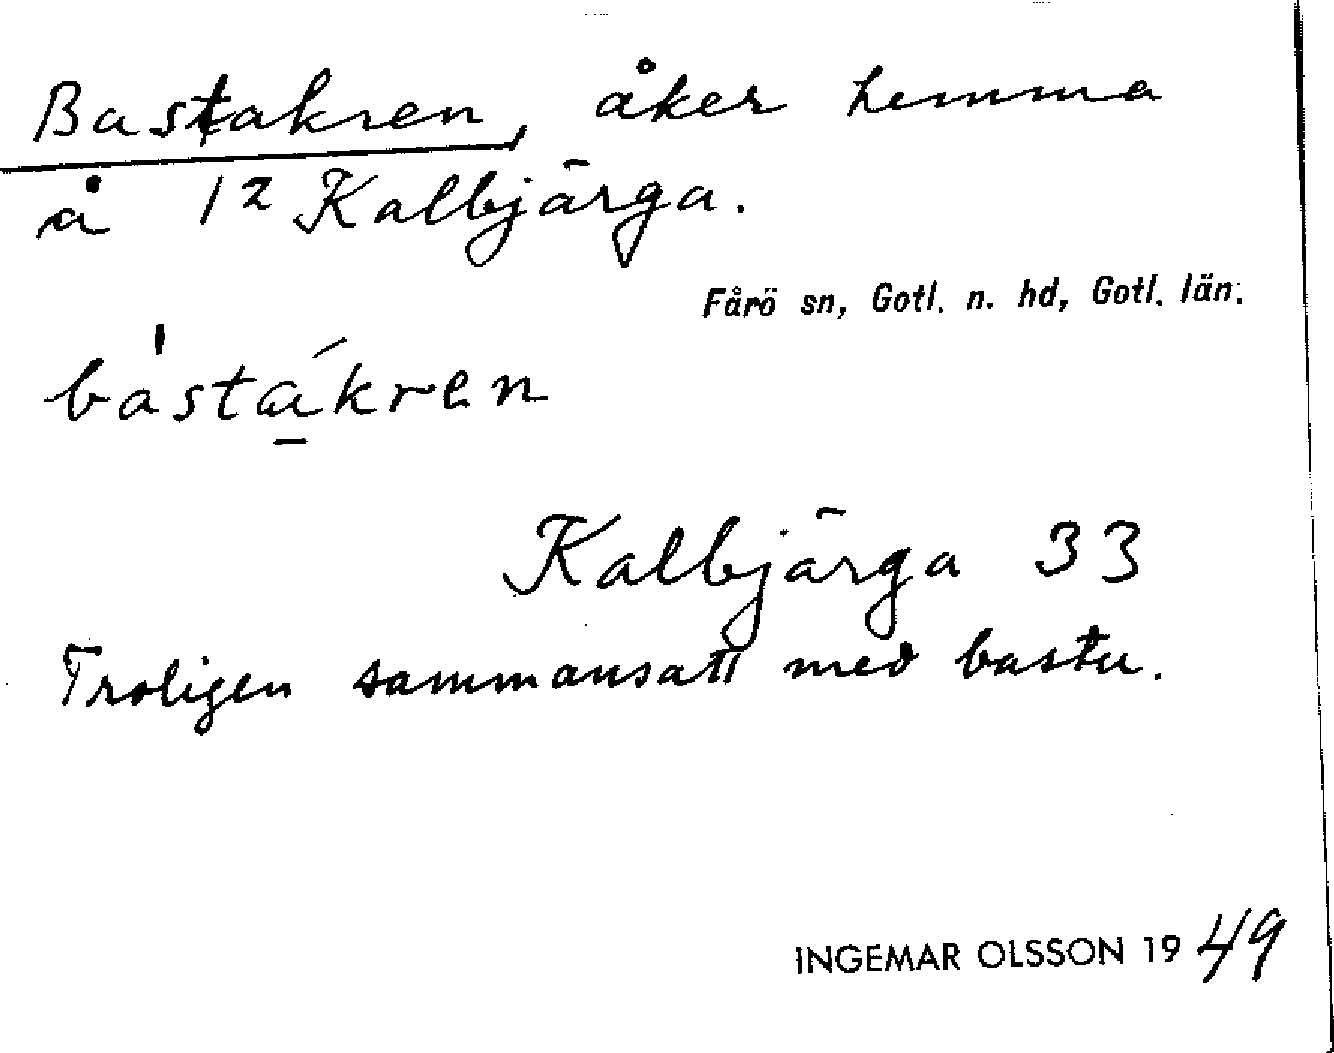 Bastakren, åker hemma
å 12 Kalbjärga.
Fårö sn, Gotl. n. hd, Gotl. län.
bástákren
Kalbjärga 33
Troligen sammansatt med bastu.
INGEMAR OLSSON 1949